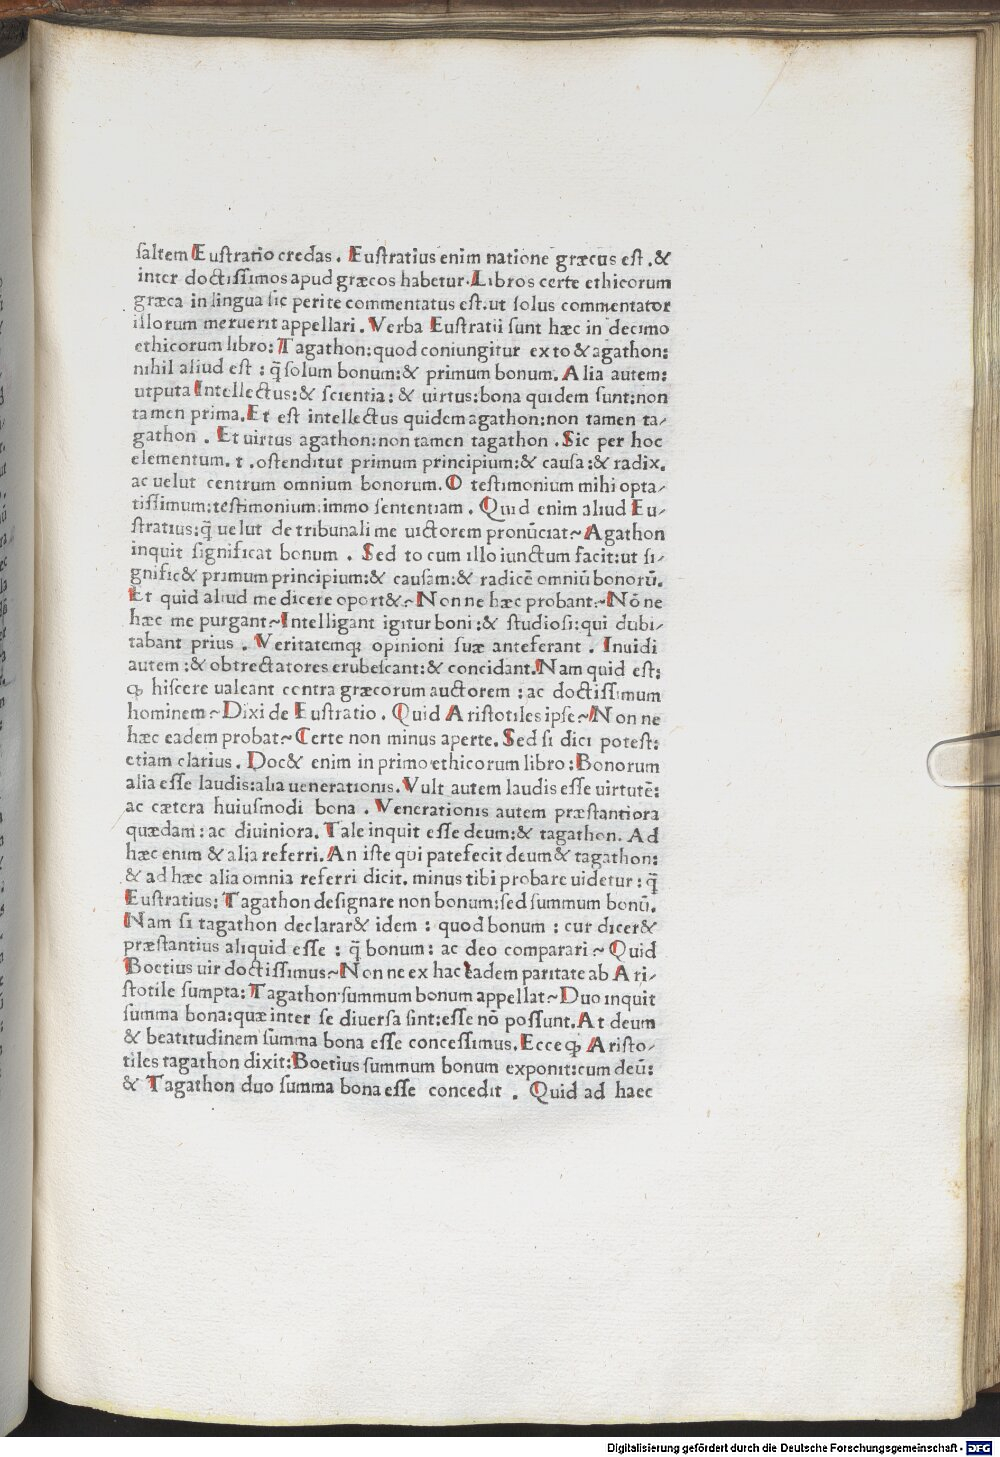 saltem Eustratio credas. Eustratius enim natione græcus est.&
inter doctissimos apud græcos habetur. Libros certe ethicorum
græca in lingua sic perite commentatus est.ut solus commentator
illorum meruerit appellari. Verba Eustratii sunt hæc in decimo
ethicorum libro: Tagathon:quod coniungitur ex to & agathon:
nihil aliud est : q̃ solum bonum:& primum bonum. Alia autem:
utputa Intellectus:& scientia: & uirtus:bona quidem sunt:non
tamen prima. Et est intellectus quidem agathon:non tamen ta-
gathon . Et uirtus agathon:non tamen tagathon . Sic per hoc
elementum. t .ostenditut primum principium:& causa:& radix.
ac uelut centrum omnium bonorum. O testimonium mihi opta-
tissimum:testimonium.immo sententiam . Quid enim aliud Eu-
stratius:q̃ uelut de tribunali me uictorem pronũciat~ Agathon
inquit significat bonum . Sed to cum illo iunctum facit:ut si-
gnific& primum principium:& causam:& radicẽ omniũ bonorũ.
Et quid aliud me dicere oport&~ Nonne hæc probant~ Nõne
hæc me purgant~ Intelligant igitur boni:& studiosi:qui dubi-
tabant prius . Veritatemqꝫ opinioni suæ anteferant . Inuidi
autem:& obtrectatores erubescant:& concidant. Nam quid est:
ꝙ hiscere ualeant contra græcorum auctorem : ac doctissimum
hominem~ Dixi de Eustratio. Quid Aristotiles ipse~ Nonne
hæc eadem probat~ Certe non minus aperte. Sed si dici potest:
etiam clarius. Doc& enim in primo ethicorum libro: Bonorum
alia esse laudis:alia uenerationis. Vult autem laudis esse uirtutẽ:
ac cætera huiusmodi bona . Venerationis autem præstantiora
quædam: ac diuiniora. Tale inquit esse deum:& tagathon. Ad
hæc enim & alia referri. An iste qui patefecit deum & tagathon:
& ad hæc alia omnia referri dicit. minus tibi probare uidetur: q̃
Eustratius: Tagathon designare non bonum:sed summum bonũ.
Nam si tagathon declarar& idem : quod bonum : cur dicer&
præstantius aliquid esse : q̃ bonum: ac deo comparari~ Quid
Boetius uir doctissimus~ Nonne ex hac eadem paritate ab Ari-
stotile sumpta: Tagathon summum bonum appellat~ Duo inquit
summa bona:quæ inter se diuersa sint:esse nõ possunt. At deum
& beatitudinem summa bona esse concessimus. Ecce ꝙ Aristo-
tiles tagathon dixit:Boetius summum bonum exponit:cum deũ:
& Tagathon duo summa bona esse concedit . Quid ad haec
Digitalisierung gefördert durch die Deutsche Forschungsgemeinschaft - DFG